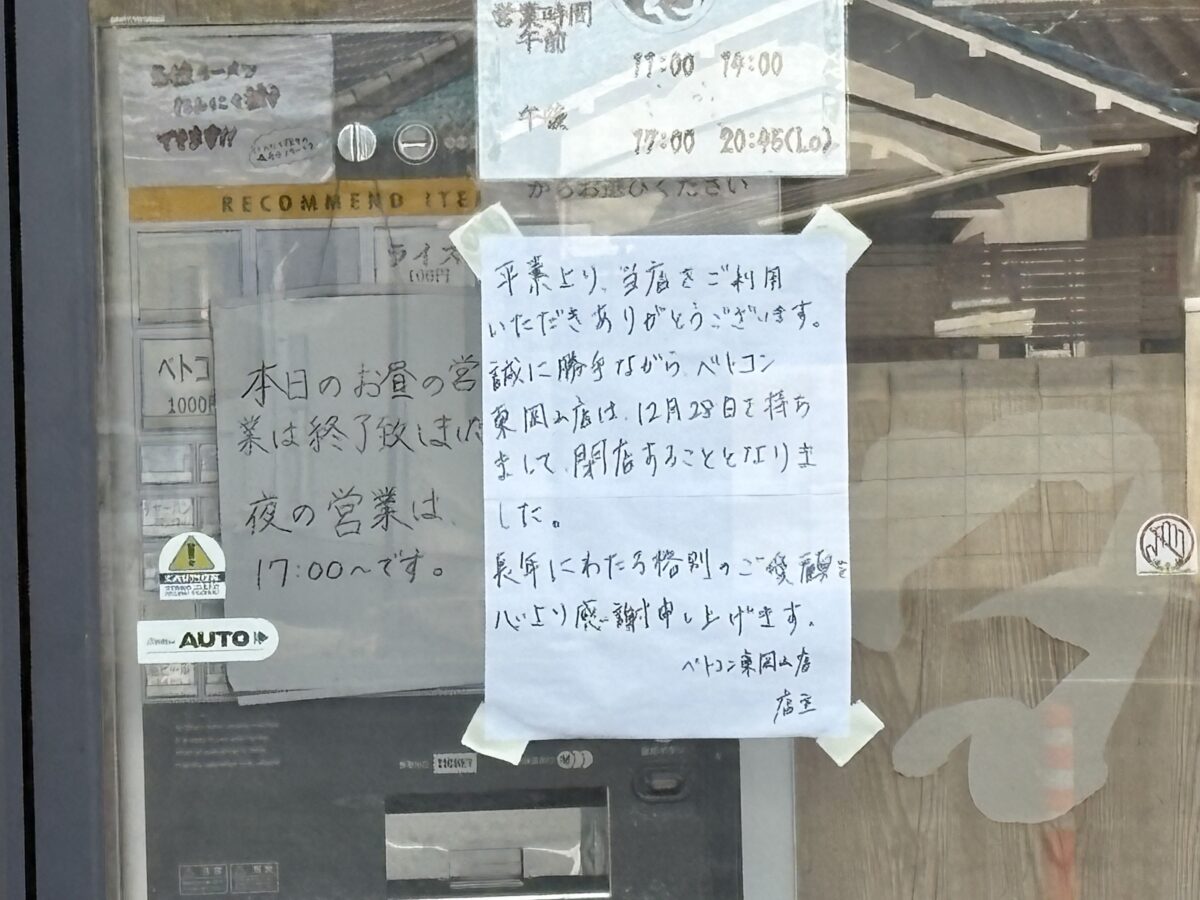 営業時間
午前
11:00 14:00
午後
17:00 20:45(Lo)
できます!!
RECOMMEND ITE
からお選びください
ライス
100円
ベトコ
1000円
本日のお昼の営
業は終了致しました
夜の営業は、
17:00〜です。
平業より、当店をご利用
いただきありがとうございます。
誠に勝手ながら、ベトコン
東岡山店は、12月28日を持ち
まして、閉店することとなりま
した。
長年にわたる格別のご愛顧を
心より感謝申し上げます。
ベトコン東岡山店
店主
AUTO
TICKET